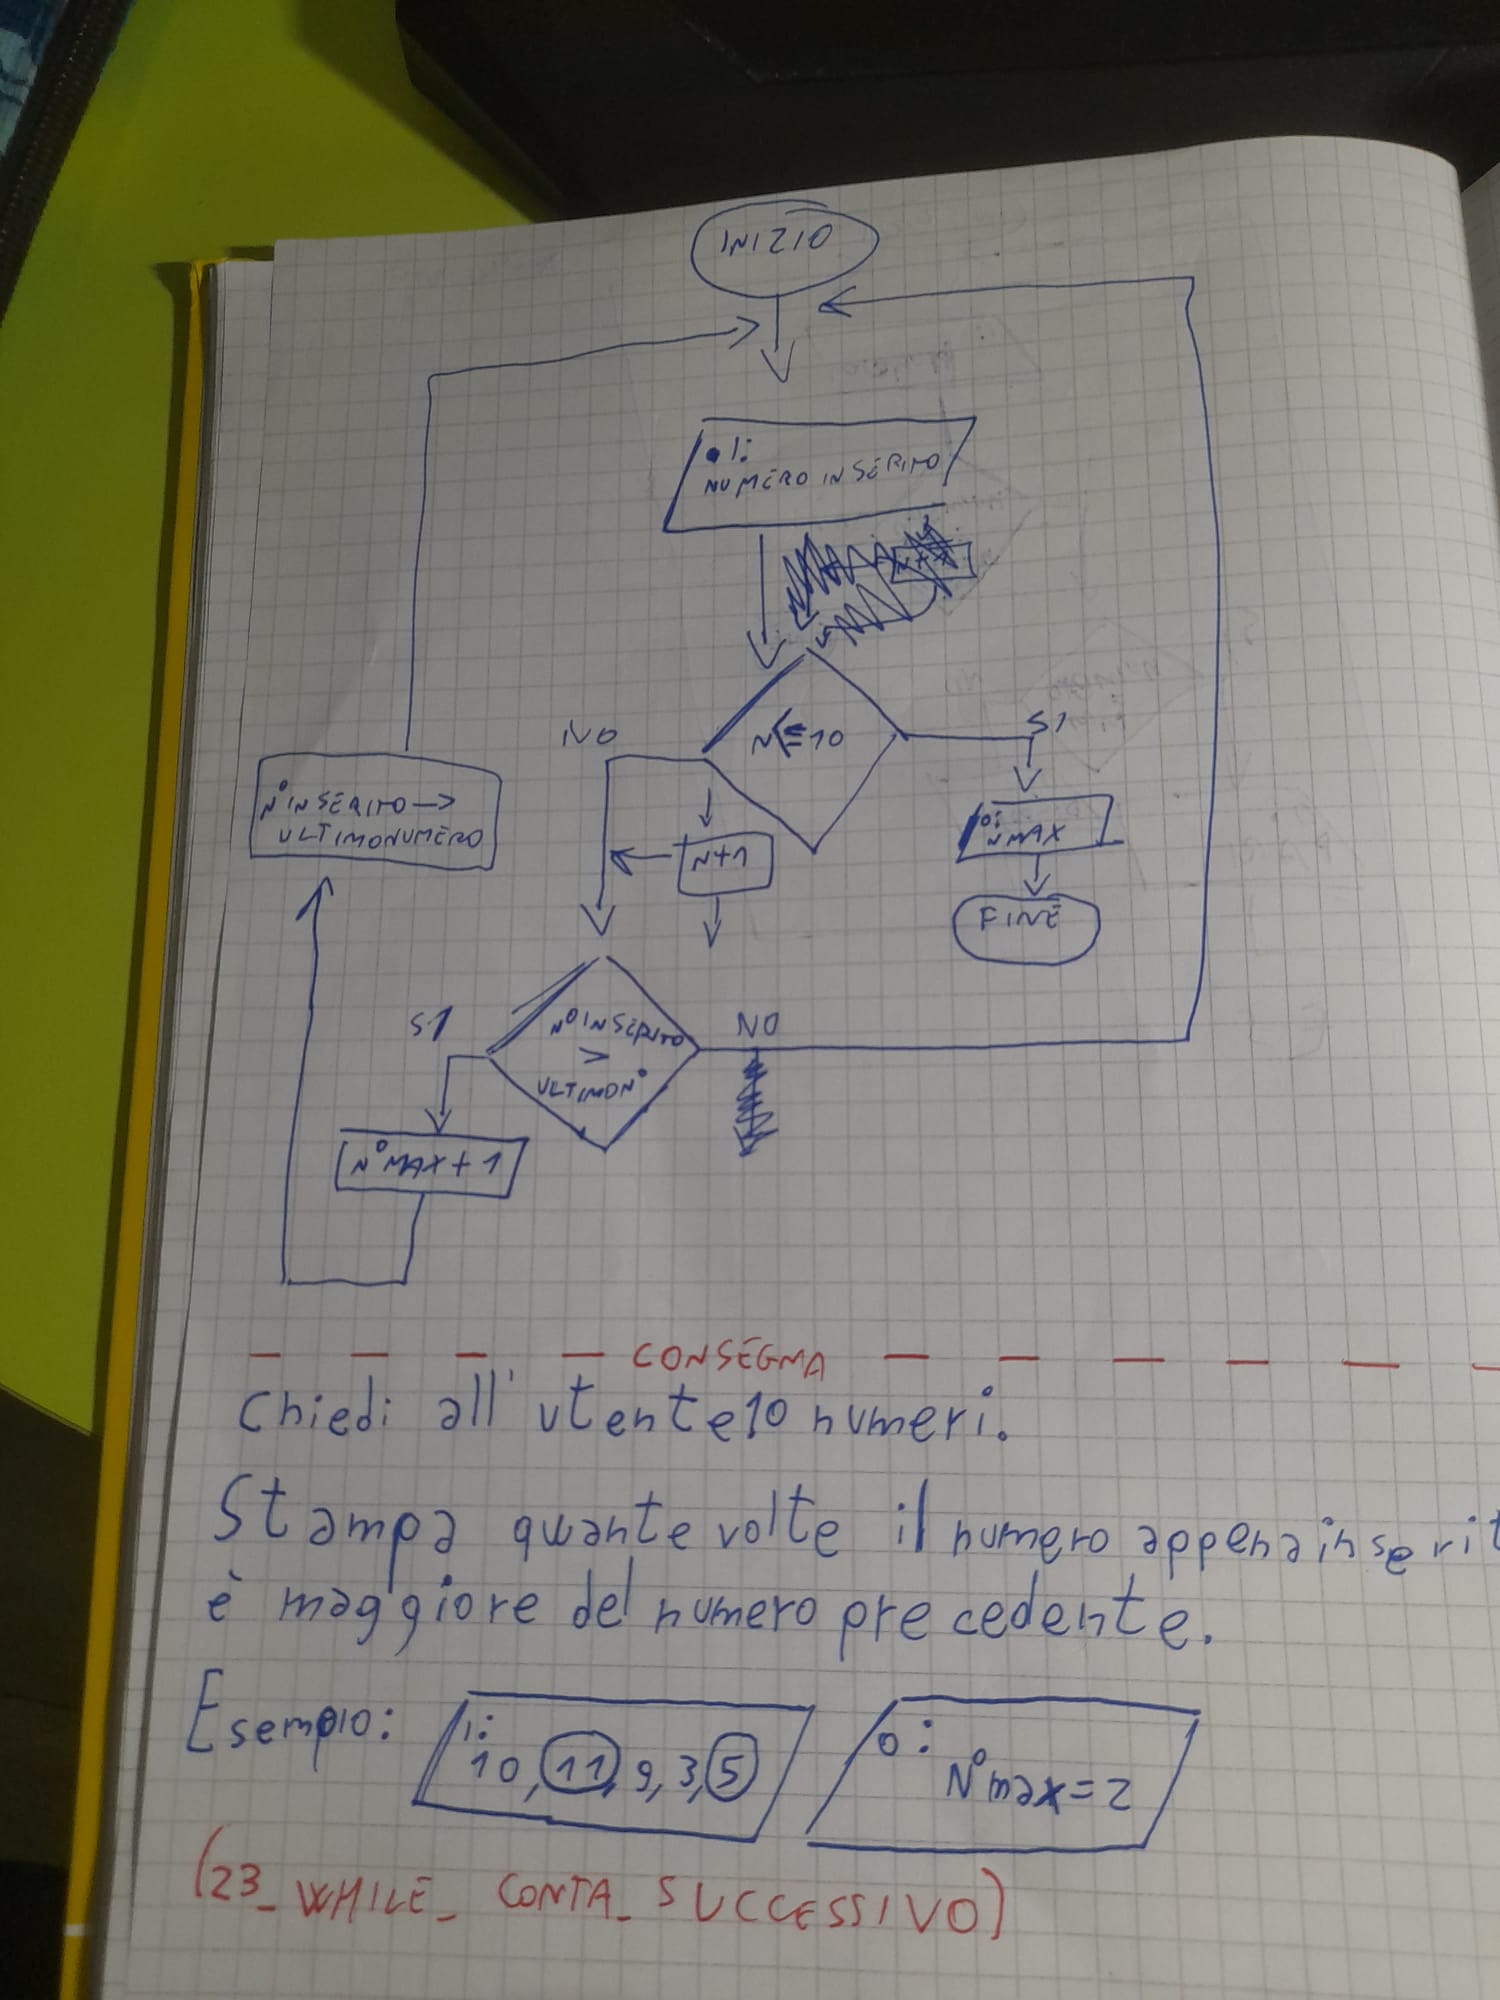 INIZIO
I:
NUMERO INSERITO
N<=10
NO
SI
N°INSERITO ->
ULTIMONUMERO
N+1
O:
NMAX
FINE
N°INSERITO
>
ULTIMON°
SI
NO
N°MAX + 1
— — — — CONSEGNA — — — — — —
Chiedi all'utente 10 numeri.
Stampa quante volte il numero appena inserit
è maggiore del numero precedente.
Esempio:
I:
10, 11, 9, 3, 5
O:
N°max=2
(23_WHILE_CONTA_SUCCESSIVO)